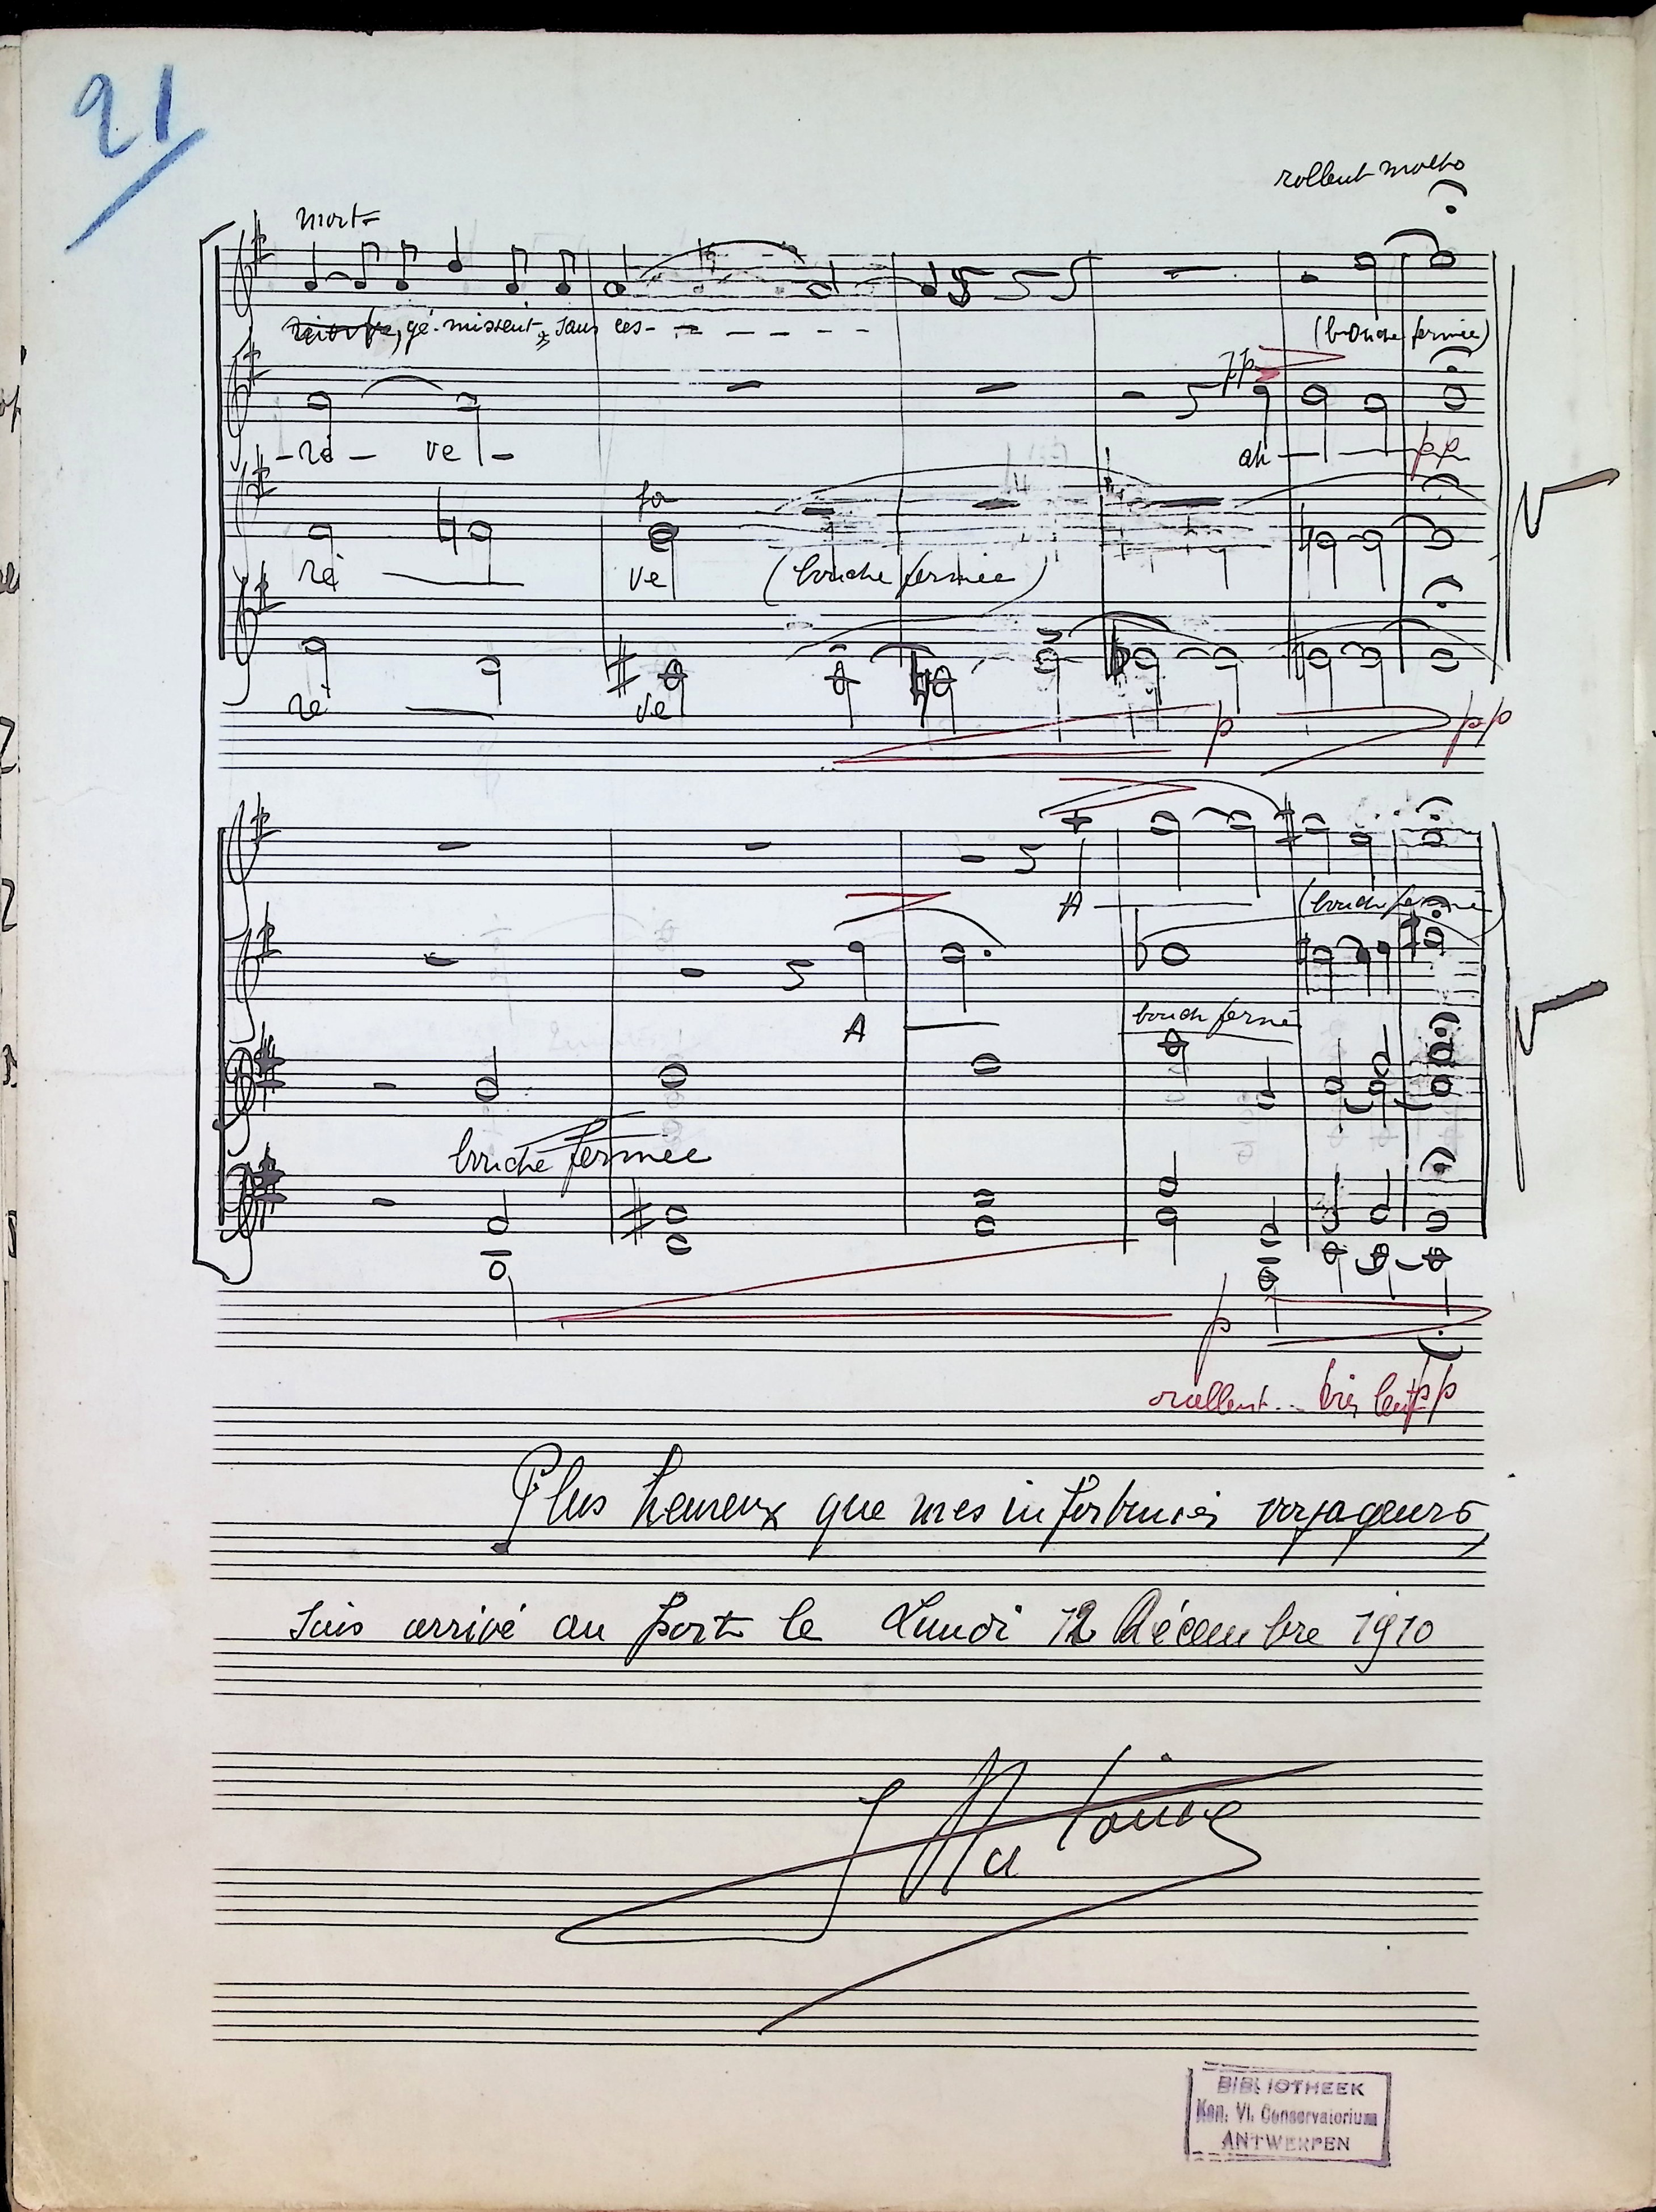 21
rallent molto
mort
gé-missent sans ces-
(bouche fermée)
pp
-rê- ve-
ah
pp
rê ve (bouche fermée)
rê ve
p pp
A (bouche fermée)
A bouch fermé
bouche fermée
p
rallent... très lent pp
Plus heureux que mes infortunés voyageurs,
suis arrivé au port le Lundi 12 Décembre 1910
BIBLIOTHEEK
Kon. Vl. Conservatorium
ANTWERPEN